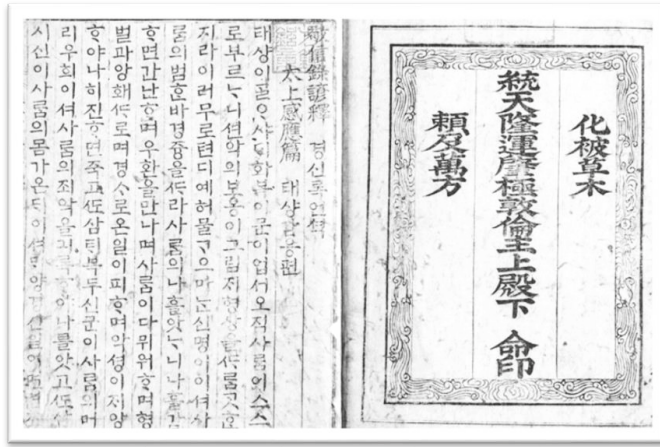 化被草木
統天隆運肇極敦倫主上殿下 命印
賴及萬方
敬信錄諺釋 경신록언셕
太上感應篇 태샹감응편
태샹이ᄀᆞᆯᄋᆞ샤ᄃᆡ화복이문이업서오직사ᄅᆞᆷ이스스
로부르ᄂᆞ니션악의보응이그림재형상을ᄯᆞ롬ᄀᆞᆺᄒᆞᆫ
지라이러무로텬디예허믈ᄀᆞ음아ᄂᆞᆫ신명이이셔사
ᄅᆞᆷ의범ᄒᆞᆫ바경즁을ᄯᆞ라사ᄅᆞᆷ의나흘앗ᄂᆞ니나흘
ᄒᆞ면간난ᄒᆞ며우환을만나며사ᄅᆞᆷ이다뮈워ᄒᆞ며형
벌과앙홰ᄯᆞ로며경ᄉᆞ로온일이피ᄒᆞ며악셩이ᄌᆡ앙
ᄒᆞ야나히진ᄒᆞ면죽고ᄯᅩ삼ᄐᆡ북두신군이사ᄅᆞᆷ의머
리우희이셔사ᄅᆞᆷ의죄악을긔록ᄒᆞ야나를앗고ᄯᅩ삼
시신이사ᄅᆞᆷ의몸가온ᄃᆡ이셔ᄆᆡ양경신일이